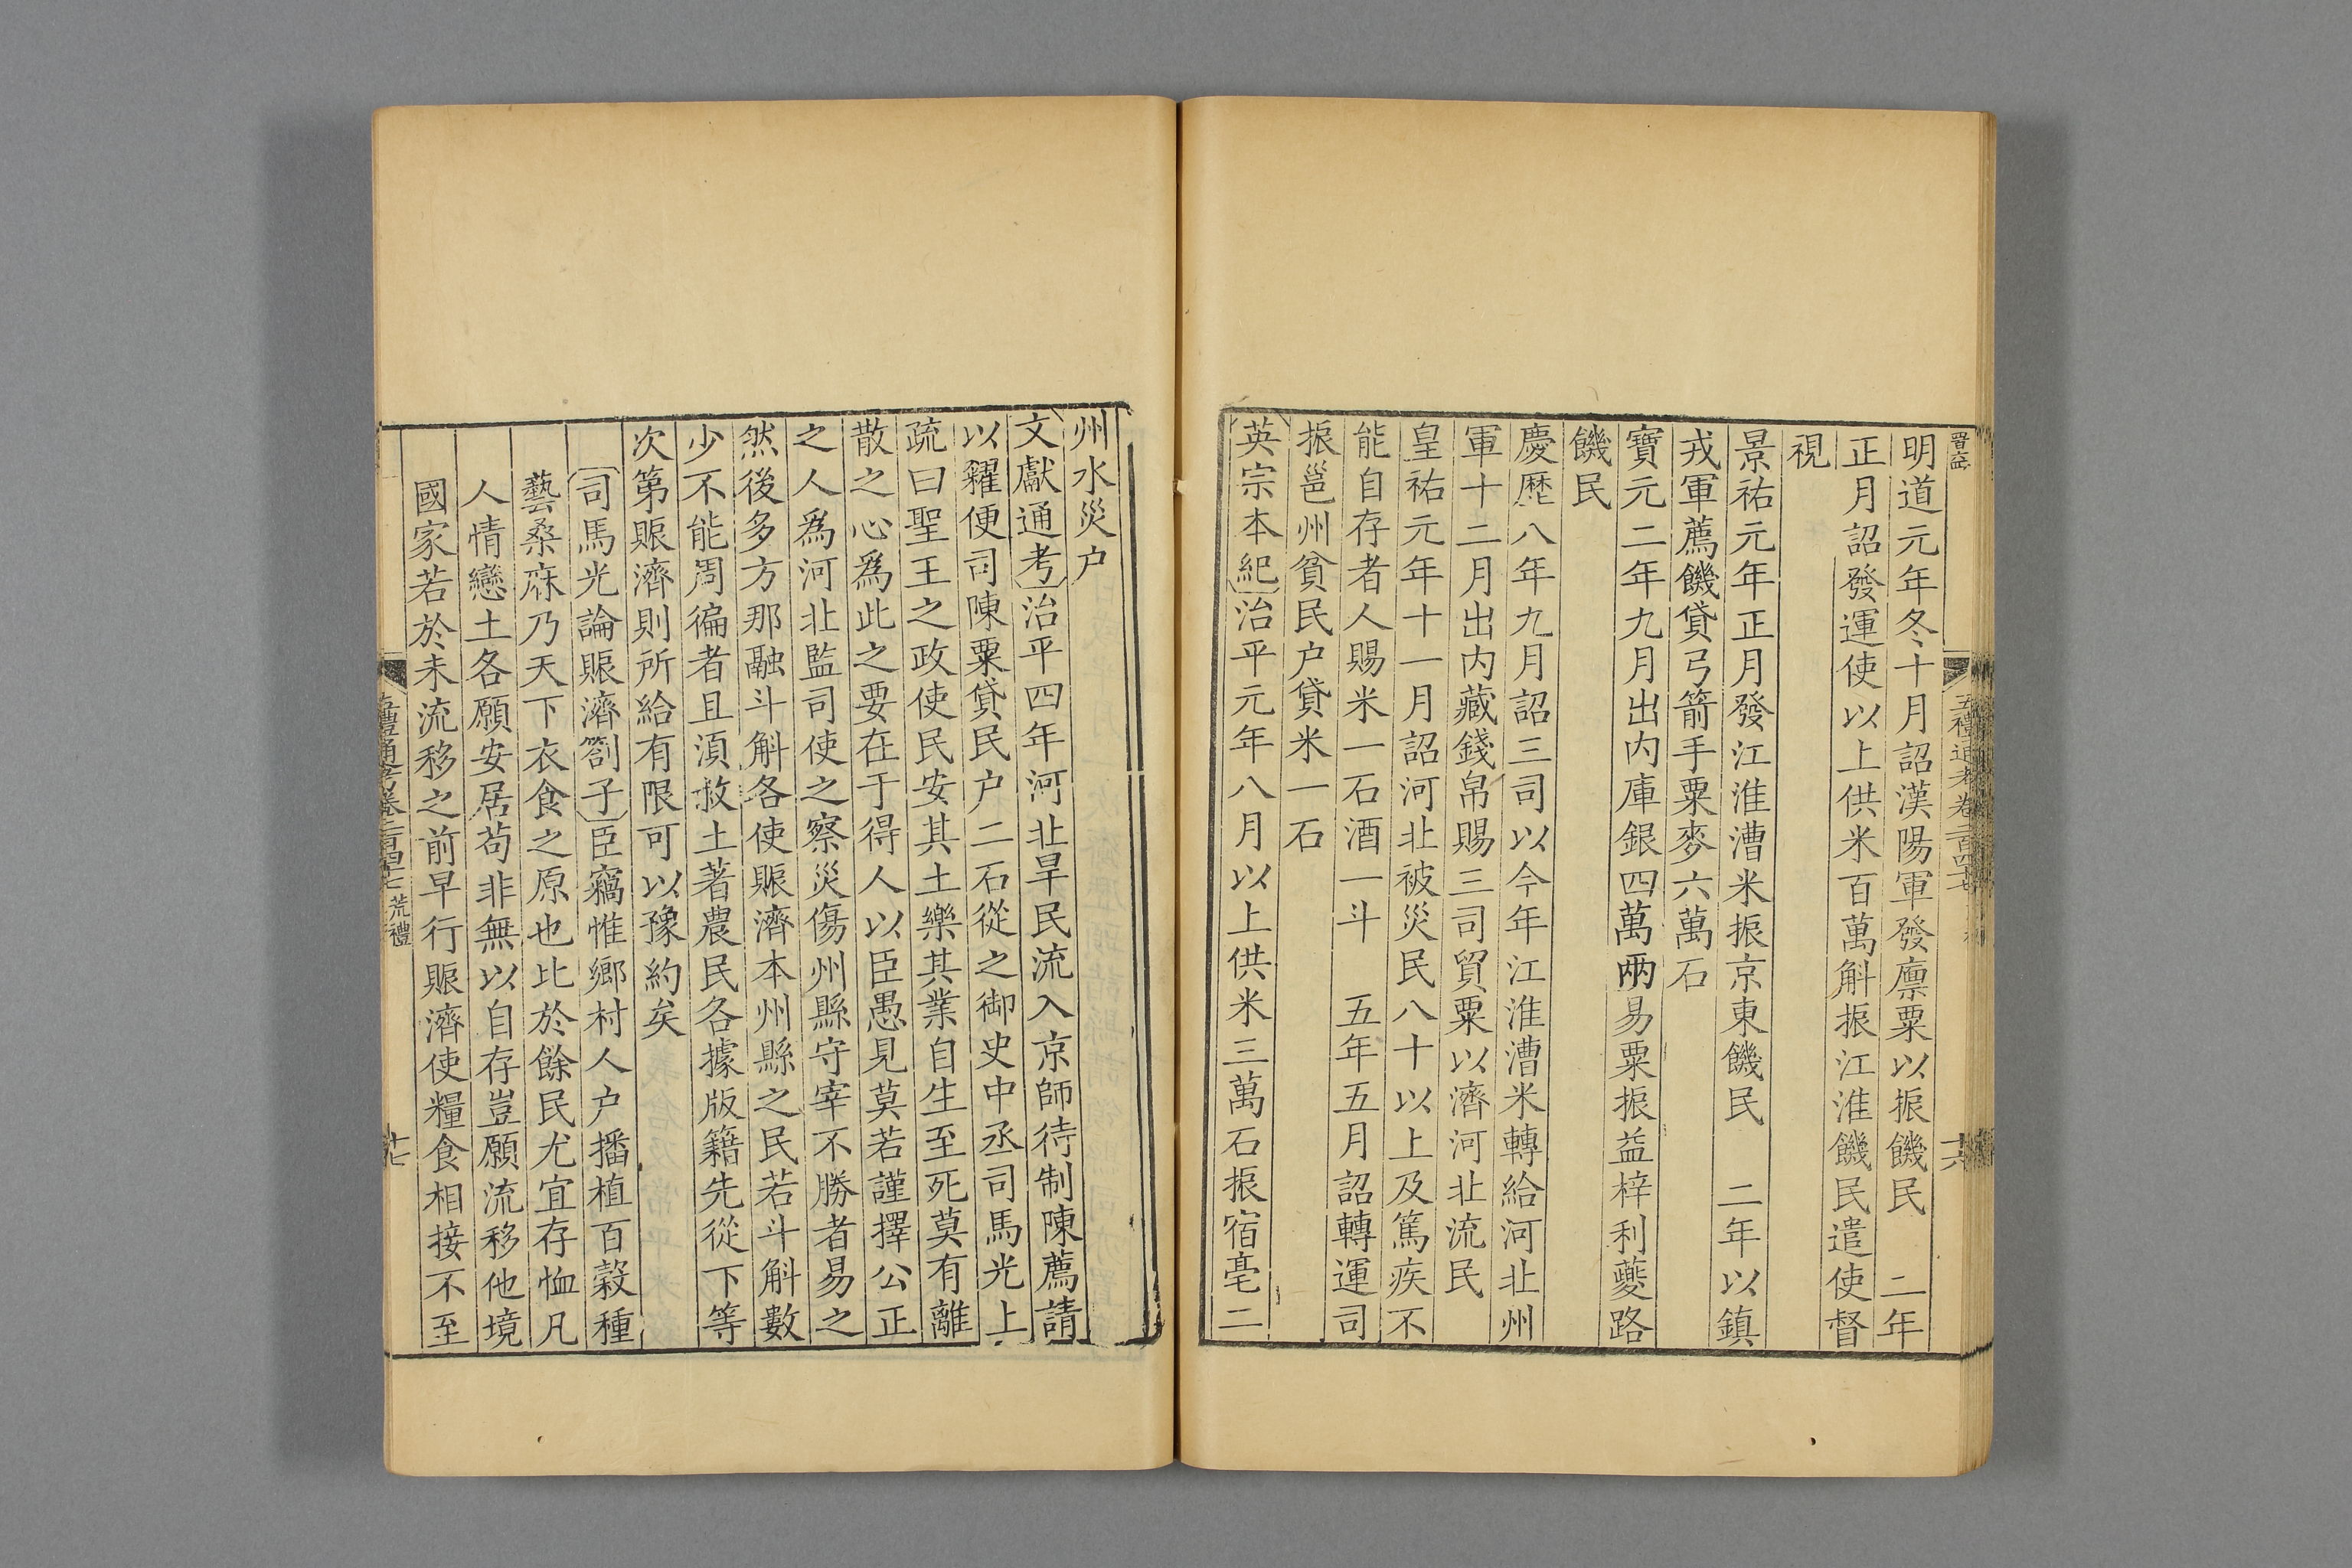 五禮通考卷二百四十七
十六
明道元年冬十月詔漢陽軍發廩粟以振饑民　二年
正月詔發運使以上供米百萬斛振江淮饑民遣使督
視
景祐元年正月發江淮漕米振京東饑民　二年以鎮
戎軍薦饑貸弓箭手粟麥六萬石
寶元二年九月出內庫銀四萬兩易粟振益梓利夔路
饑民
慶歷八年九月詔三司以今年江淮漕米轉給河北州
軍十二月出內藏錢帛賜三司貿粟以濟河北流民
皇祐元年十一月詔河北被災民八十以上及篤疾不
能自存者人賜米一石酒一斗　五年五月詔轉運司
振邕州貧民户貸米一石
英宗本紀治平元年八月以上供米三萬石振宿亳二
州水災户
文獻通考治平四年河北旱民流入京師待制陳薦請
以糴便司陳粟貸民户二石從之御史中丞司馬光上
疏曰聖王之政使民安其土樂其業自生至死莫有離
散之心爲此之要在于得人以臣愚見莫若謹擇公正
之人爲河北監司使之察災傷州縣守宰不勝者易之
然後多方那融斗斛各使賑濟本州縣之民若斗斛數
少不能周徧者且須救土著農民各據版籍先從下等
次第賑濟則所給有限可以豫約矣
司馬光論賑濟劄子臣竊惟鄉村人户播植百穀種
藝桑麻乃天下衣食之原也比於餘民尤宜存恤凡
人情戀土各願安居苟非無以自存豈願流移他境
國家若於未流移之前早行賑濟使糧食相接不至
五禮通考卷二百四十七　荒禮
十七